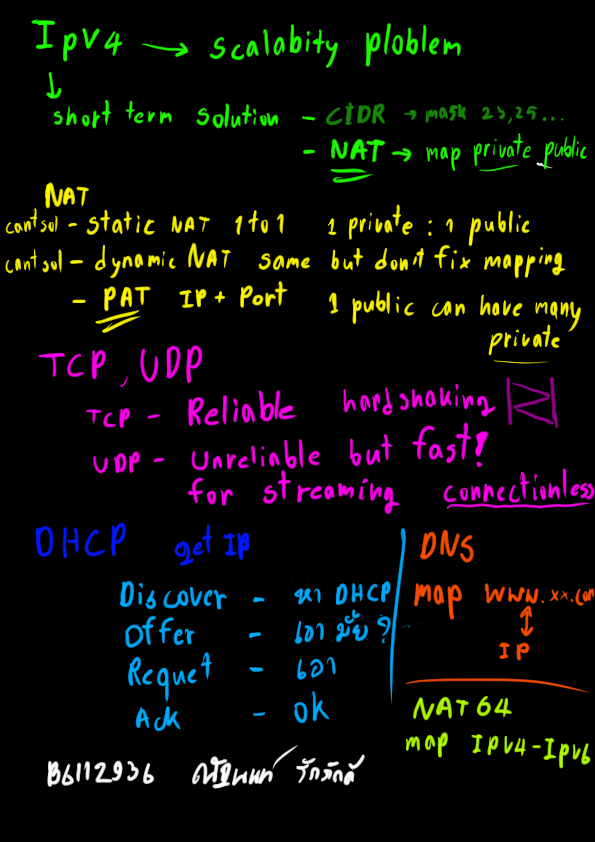 IpV4 → scalabity ploblem
↓
short term solution - CIDR → mask 23,25...
- NAT → map private public
NAT
cant sol - static NAT 1 to 1 1 private : 1 public
cant sol - dynamic NAT same but don't fix mapping
- PAT IP + Port 1 public can have many
private
TCP, UDP
TCP - Reliable handshaking
UDP - Unreliable but fast!
for streaming connectionless
DHCP get IP
Discover - หา DHCP
Offer - เอามั้ย?
Requet - เอา
Ack - ok
DNS
map www.xx.com
↕
IP
NAT64
map IPV4-IPV6
B6112936 ณัฐนนท์ รักภักดี